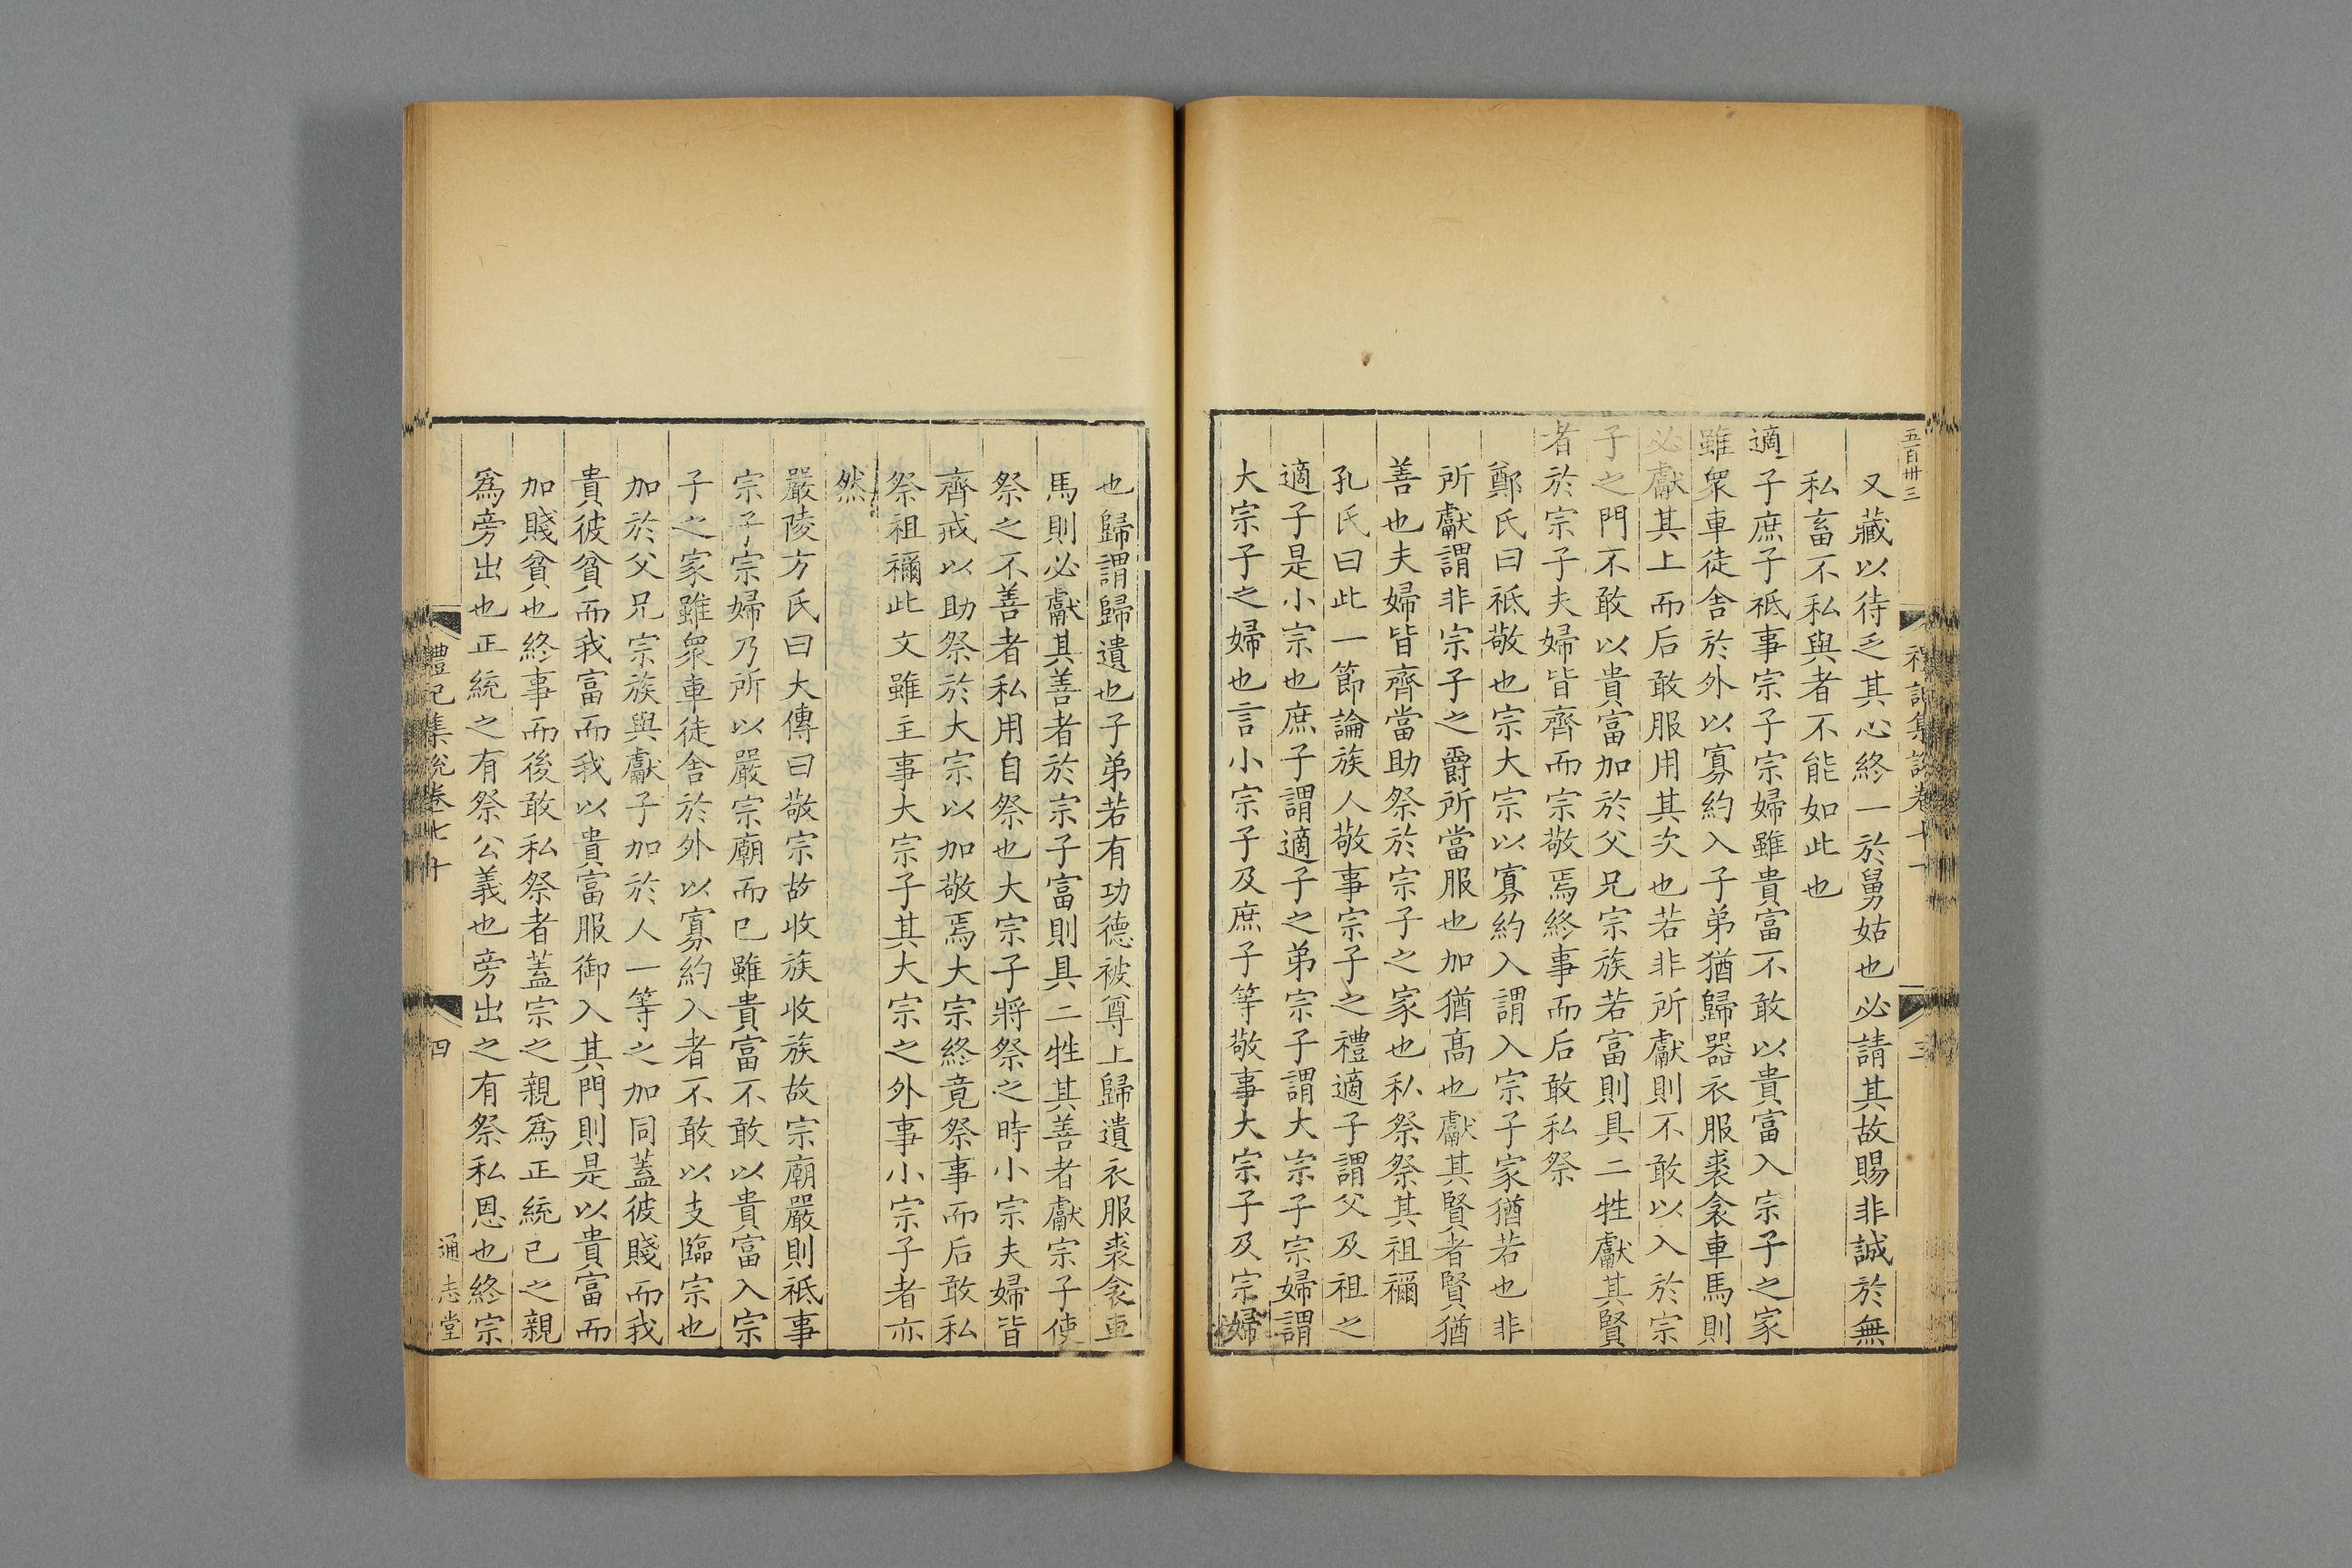 五百卅三
又藏以待乏其心終一於舅姑也必請其故賜非誠於無
私畜不私與者不能如此也
適子庶子祗事宗子宗婦雖貴富不敢以貴富入宗子之家
雖衆車徒舍於外以寡約入子弟猶歸器衣服裘衾車馬則
必獻其上而后敢服用其次也若非所獻則不敢以入於宗
子之門不敢以貴富加於父兄宗族若富則具二牲獻其賢
者於宗子夫婦皆齊而宗敬焉終事而后敢私祭
鄭氏曰祗敬也宗大宗以寡約入謂入宗子家猶若也非
所獻謂非宗子之爵所當服也加猶高也獻其賢者賢猶
善也夫婦皆齊當助祭於宗子之家也私祭祭其祖禰
孔氏曰此一節論族人敬事宗子之禮適子謂父及祖之
適子是小宗也庶子謂適子之弟宗子謂大宗子宗婦謂
大宗子之婦也言小宗子及庶子等敬事大宗子及宗婦
也歸謂歸遺也子弟若有功德被尊上歸遺衣服裘衾車
馬則必獻其善者於宗子富則具二牲其善者獻宗子使
祭之不善者私用自祭也大宗子將祭之時小宗夫婦皆
齊戒以助祭於大宗以加敬焉大宗終竟祭事而后敢私
祭祖禰此文雖主事大宗子其大宗之外事小宗子者亦
然
嚴陵方氏曰大傳曰敬宗故收族收族故宗廟嚴則祗事
宗子宗婦乃所以嚴宗廟而已雖貴富不敢以貴富入宗
子之家雖衆車徒舍於外以寡約入者不敢以支臨宗也
加於父兄宗族與獻子加於人一等之加同蓋彼賤而我
貴彼貧而我富而我以貴富服御入其門則是以貴富而
加賤貧也終事而後敢私祭者蓋宗之親爲正統己之親
爲旁出也正統之有祭公義也旁出之有祭私恩也終宗
禮記集說卷七十
四
通志堂